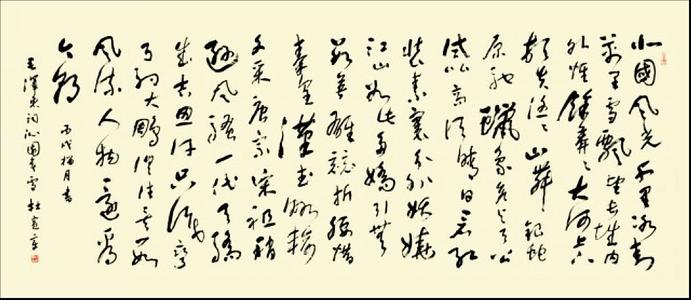 北國風光千里冰封
萬里雪飄望長城内
外惟餘莽莽大河上下
頓失滔滔山舞銀蛇
原馳蠟象欲与天公
試比高須晴日看紅
裝素裹分外妖嬈
江山如此多嬌引無
數英雄競折腰惜
秦皇漢武略輸
文采唐宗宋祖稍
遜風騷一代天驕
成吉思汗只識彎
弓射大鵰俱往矣數
風流人物還看
今朝
丙戌月書
毛澤東詞沁園春雪 杜